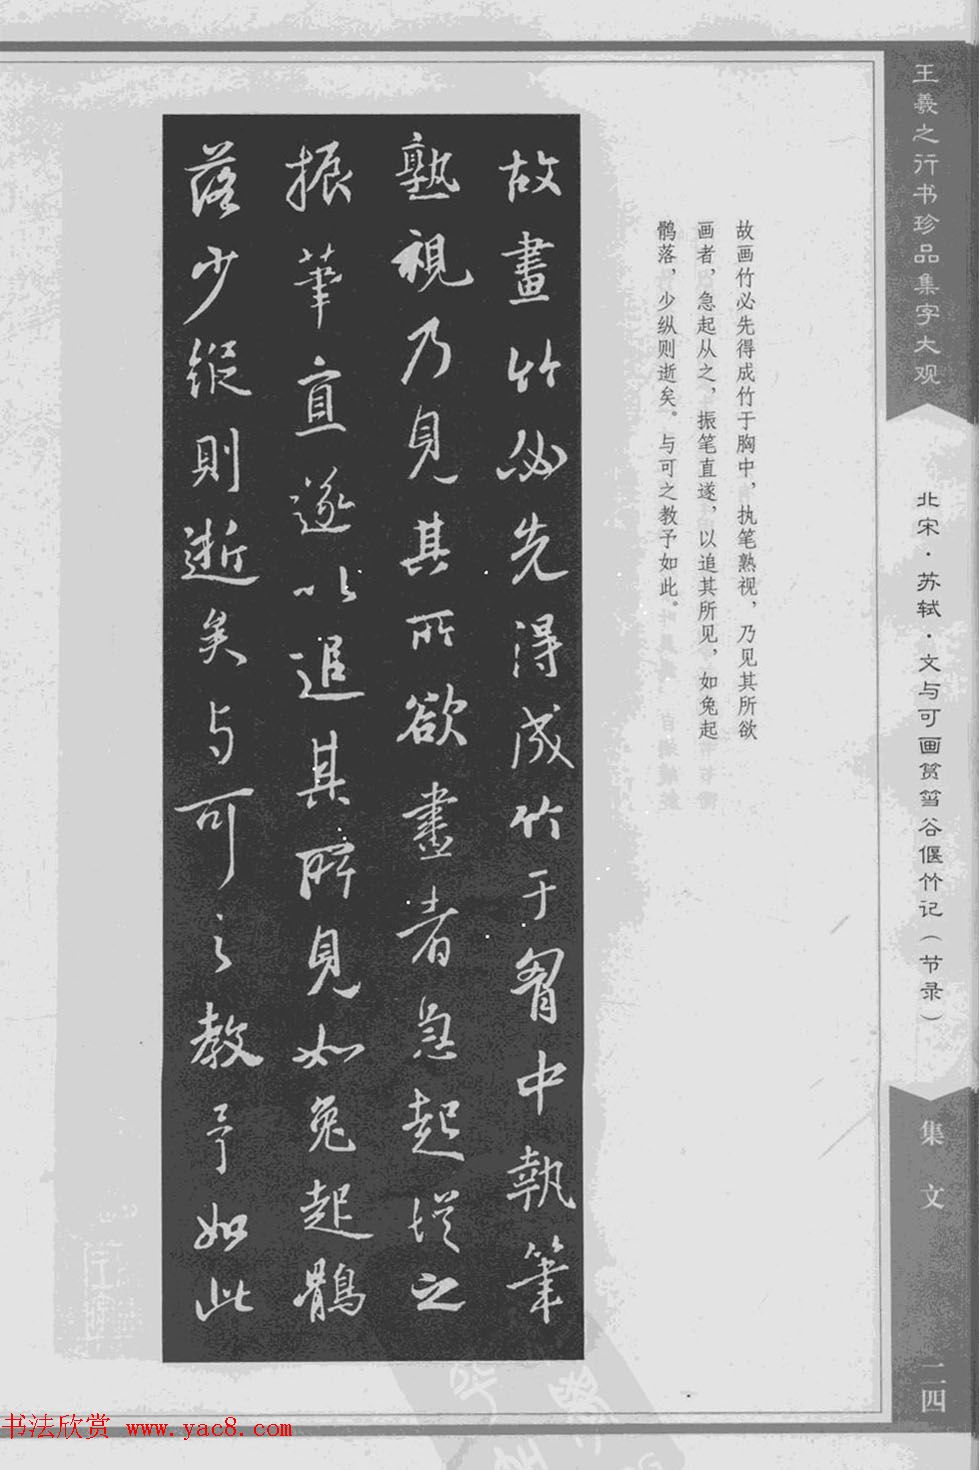 王羲之行书珍品集字大观
北宋·苏轼·文与可画筼筜谷偃竹记（节录）
集文
二四
故画竹必先得成竹于胸中，执笔熟视，乃见其所欲
画者，急起从之，振笔直遂，以追其所见，如兔起
鹘落，少纵则逝矣。与可之教予如此。
故畫竹必先得成竹于胷中執筆
孰視乃見其所欲畫者急起從之
振筆直遂以追其所見如兔起鶻
落少縱則逝矣与可之教予如此
书法欣赏 www.yac8.com